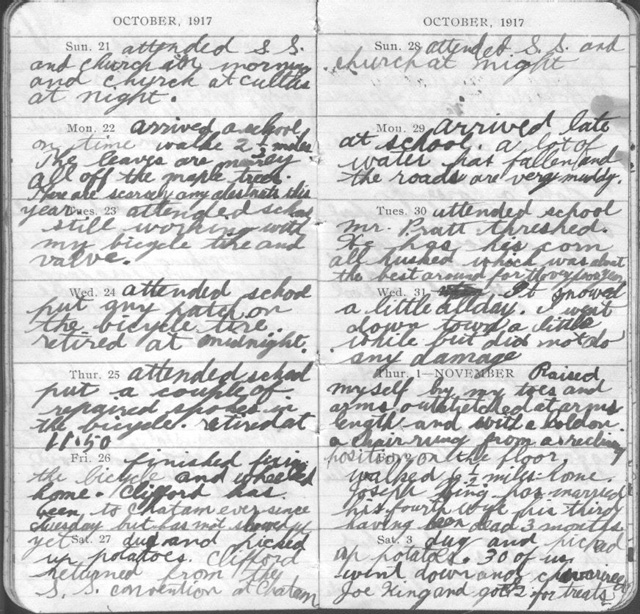 OCTOBER, 1917
Sun. 21 attended S. S.
and church in morning
and church at cults
at night.
Mon. 22 arrived a school
on time walke 2 ½ miles
The leaves are
all off the maple trees.
There are scarcely any this
year.
Tues. 23 attended school
still working with
my bicycle tire and
valve.
Wed. 24 attended school
put any patch on
the bicycle tire
retired at midnight.
Thur. 25 attended school
put a couple of
repaired spokes in
the bicycle. retired at
11:50
Fri. 26 finished fixing
the bicycle and wheeled
home. Clifford has
been to Chatam ever since
Tuesday but has not showed up
yet
Sat. 27 dug and picked
up potatoes. Clifford
returned from the
S. S. convention at Chatam
OCTOBER, 1917
Sun. 28 attended S. S. and
church at night
Mon. 29 arrived late
at school. a lot of
water has fallen and
the roads are very muddy.
Tues. 30 attended school
mr. Pratt threshed.
He has his corn
all husked which was about
the best around for
Wed. 31 It snowed
a little all day. I went
down town a little
while but did not do
any damage
Thur. 1—NOVEMBER Raised
myself by my toes and
arms outstretched at arms
length and with a hold on
a chair rung from a reclining
position on the floor.
Fri. 2
walked 6 ½ miles home.
Joseph King has married
his fourth wife his third
having been dead 3 months
Sat. 3 dug and picked
up potatoes. 30 of us
went down and charivaried
Joe King and got $2 for treats